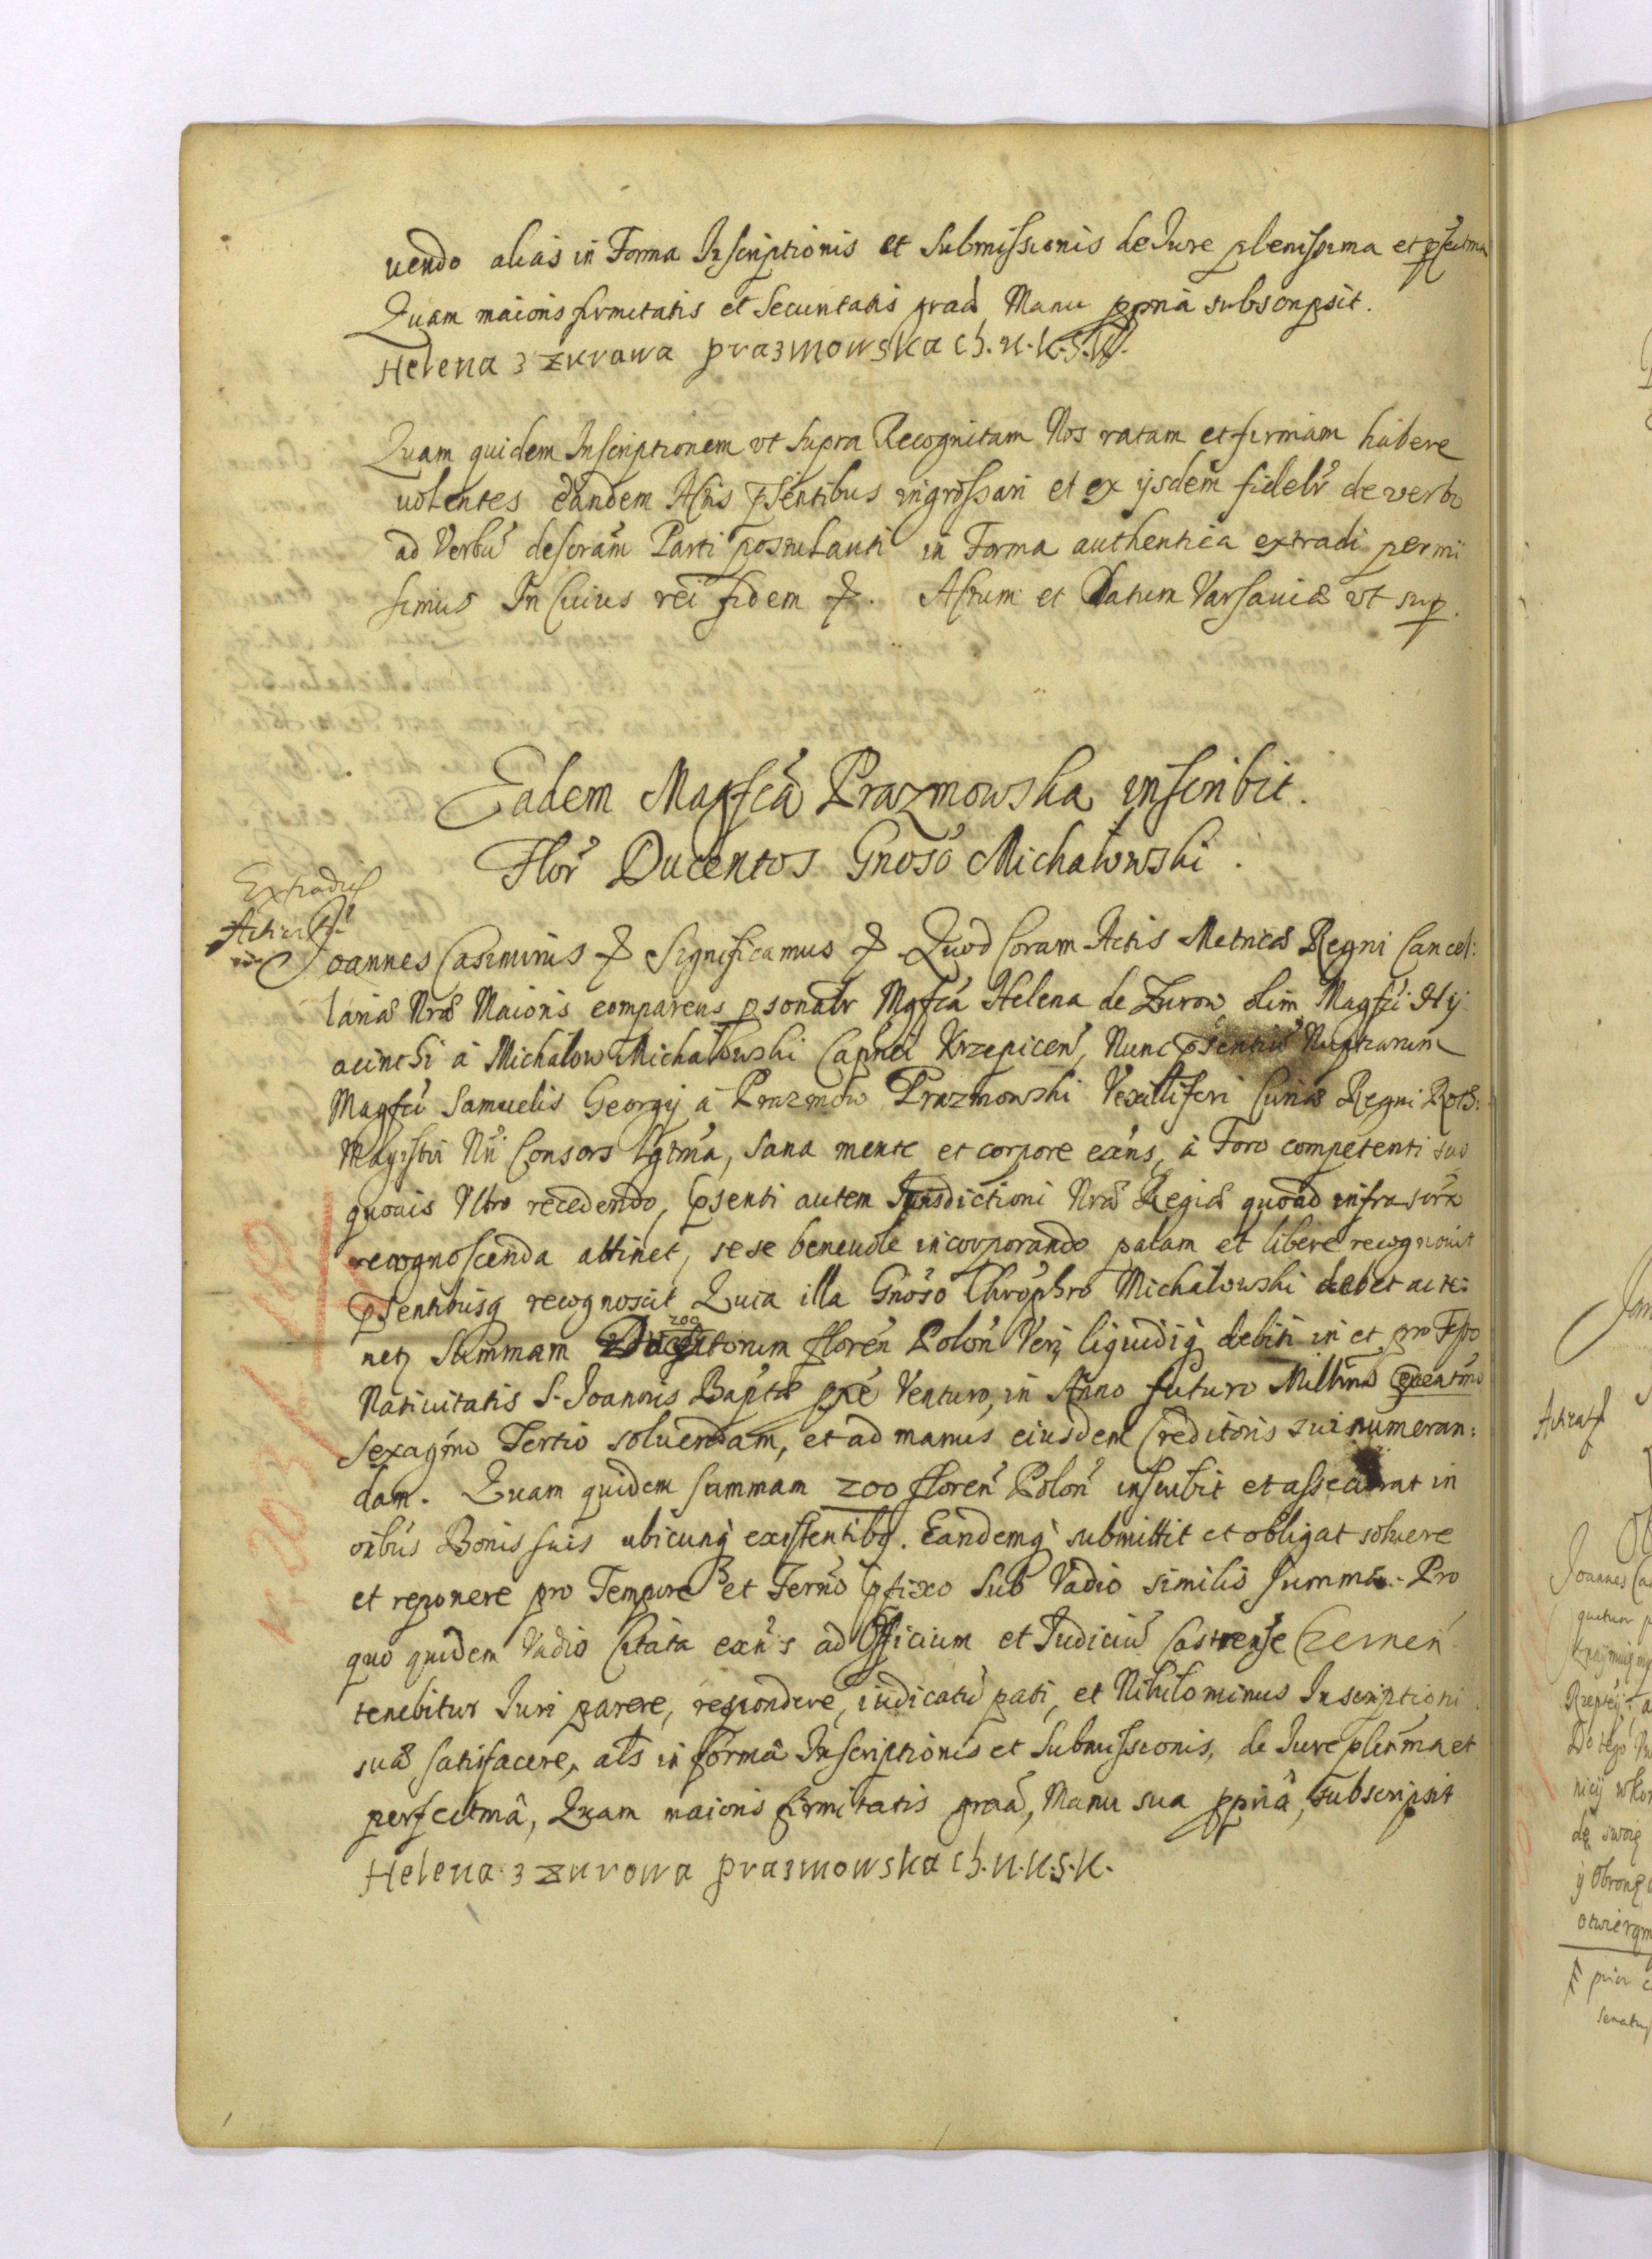 uendo alias in Forma Inscriptionis et Submissionis de Iure plenissima et pfectma
Quam maioris firmitatis et Securitatis graã Manu ppriã subscripsit.
Helena z Zurawa Prazmowska Ch. N. K. S. K.
Quam quidem Inscriptionem vt Supra Recognitam Nos ratam et firmam habere
uolentes eandem Actis psentibus ingrossari et ex ijsdem fidelr de verbo
ad Verbũ descram Parti postulanti in Forma authentica extradi permi
simus In Cuius rei fidem &. Actum et Datum Varsauiæ vt sup.
Eadem Magfca Prazmowska inscribit.
Flor Ducentos Gnoso Michalowski.
Extradit
Joannes Casimirus & Significamus & Quod Coram Actis Metricæ Regni Cancel:
lariæ Nræ Maioris comparens psonalr Mgfca Helena de Zurow, olim Magfci Hy
acinthi à Michalow Michalowski Capnei Krzepicen, Nunc psentiũ Nuptiarum
Magfci Samuelis Georgij à Prazmow Prazmowski Vexilliferi Curiæ Regni Roth:
Magistri Nri Consors lgtma, sana mente et corpore exns, à Foro competenti suo
quouis Vltro recedendo, psenti autem Jurisdictioni Nræ Regiæ quoad infra scra
recognoscenda attinet, sese beneuole incorporando palam et libere recognouit
psentibusq recognoscit Quia illa Gnoso Chrophro Michalowski debet ac te:
200
netr Summam Ducentorum floren Polon Veri liquidiq debiti in et pro Festo
Natiuitatis S. Joannis Baptæ pxe Venturo, in Anno futuro Millmo Sexentmo
Sexagmo Tertio soluendam, et ad manus eiusdem Creditoris sui numeran:
dam. Quam quidem summam 200 floren Polon inscribit et assecurat in
oibus Bonis suis ubicunq existentibq. Eandemq submittit et obligat soluere
et reponere pro Tempore et Termo pfixo Sub Vadio similis summæ. Pro
quo quidem Vadio Citata exns ad Officium et Judiciũ Castrense Czernen
tenebitur Iuri parere, respondere, iudicatũ pati, et Nihilominus Inscriptioni
suæ satisfacere, als in formâ Inscriptionis et Submissionis, de Iure plenma et
perfectmâ, Quam maioris firmitatis graã, Manu sua ppriâ, subscripsit
Helena z Zurowa Prazmowska Ch. N. K. S. K.